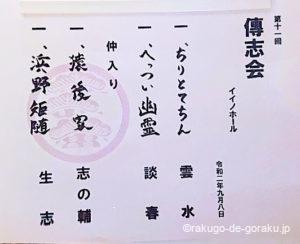 第十一回
傳志会
イイノホール
令和二年九月八日
一、ちりとてちん 雲水
一、へっつい幽霊 談春
仲入り
一、猿後家 志の輔
一、浜野矩随 生志
©rakugo-de-goraku.jp